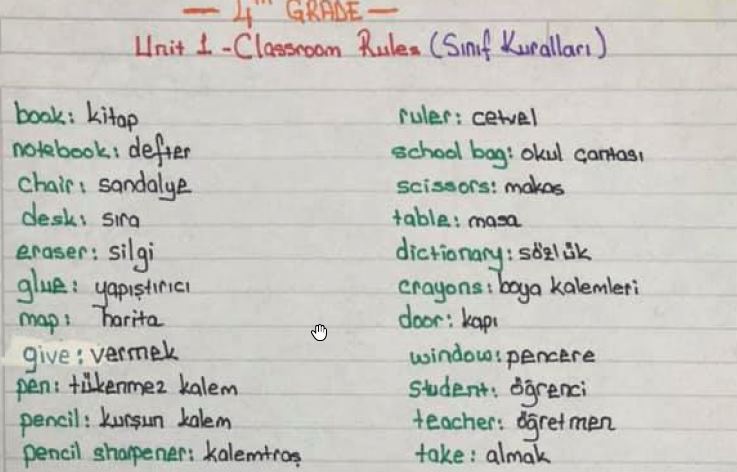 — 4th GRADE —
Unit 1 - Classroom Rules (Sınıf Kuralları)
book: kitap
notebook: defter
chair: sandalye
desk: sıra
eraser: silgi
glue: yapıştırıcı
map: harita
give: vermek
pen: tükenmez kalem
pencil: kurşun kalem
pencil sharpener: kalemtraş
ruler: cetvel
school bag: okul çantası
scissors: makas
table: masa
dictionary: sözlük
crayons: boya kalemleri
door: kapı
window: pencere
student: öğrenci
teacher: öğretmen
take: almak